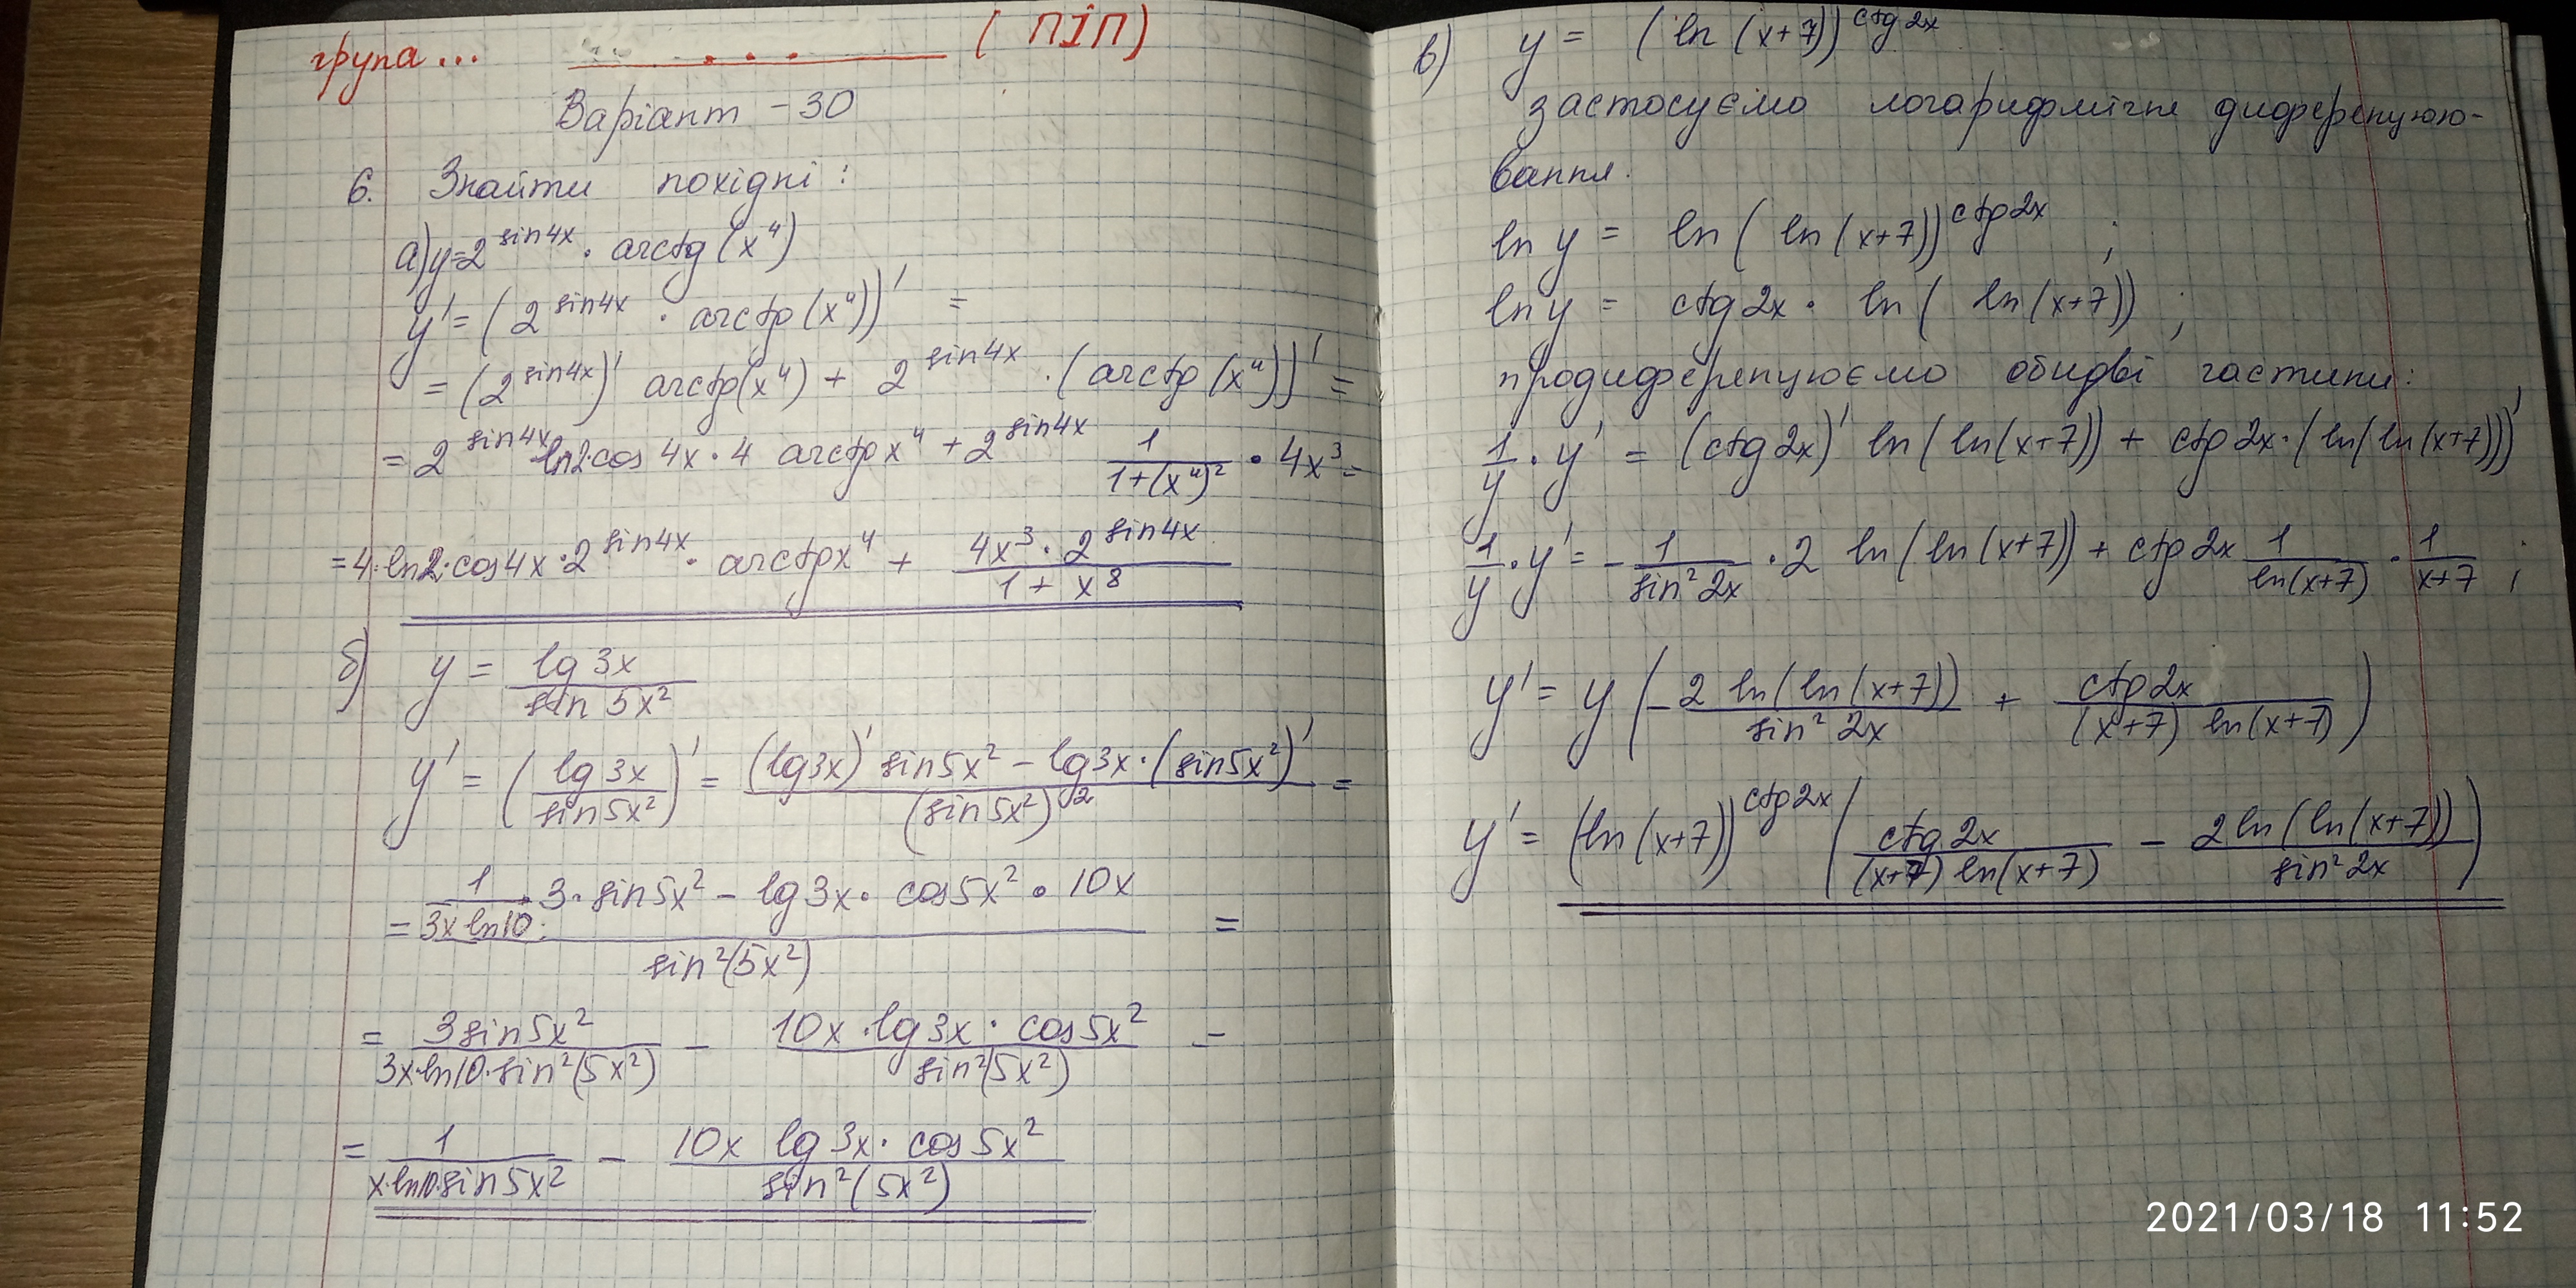 група... ... (ПІП)
Варіант - 30
6. Знайти похідні:
а) y=2^{sin4x} · arctg(x⁴)
y' = (2^{sin4x} · arctg(x⁴))' =
= (2^{sin4x})' arctg(x⁴) + 2^{sin4x} · (arctg(x⁴))' =
= 2^{sin4x} ln2·cos4x·4 arctgx⁴ + 2^{sin4x} \frac{1}{1+(x⁴)²} · 4x³ =
= 4·ln2·cos4x·2^{sin4x} · arctgx⁴ + \frac{4x³·2^{sin4x}}{1+x⁸}
б) y = \frac{lg3x}{sin5x²}
y' = (\frac{lg3x}{sin5x²})' = \frac{(lg3x)' sin5x² - lg3x·(sin5x²)'}{(sin5x²)²} =
= \frac{\frac{1}{3x·ln10}·3·sin5x² - lg3x·cos5x²·10x}{sin²(5x²)} =
= \frac{3sin5x²}{3x·ln10·sin²(5x²)} - \frac{10x·lg3x·cos5x²}{sin²(5x²)} =
= \frac{1}{x·ln10·sin5x²} - \frac{10x lg3x·cos5x²}{sin²(5x²)}
в) y = (ln(x+7))^{ctg2x}
застосуємо логарифмічне диференціюю-
вання.
ln y = ln(ln(x+7))^{ctg2x} ;
ln y = ctg2x · ln(ln(x+7)) ;
продиференціюємо обидві частини:
\frac{1}{y}·y' = (ctg2x)' ln(ln(x+7)) + ctg2x·(ln(ln(x+7)))'
\frac{1}{y}·y' = -\frac{1}{sin²2x}·2 ln(ln(x+7)) + ctg2x \frac{1}{ln(x+7)}·\frac{1}{x+7} ;
y' = y(-\frac{2 ln(ln(x+7))}{sin²2x} + \frac{ctg2x}{(x+7) ln(x+7)})
y' = (ln(x+7))^{ctg2x} (\frac{ctg2x}{(x+7) ln(x+7)} - \frac{2ln(ln(x+7))}{sin²2x})
2021/03/18 11:52